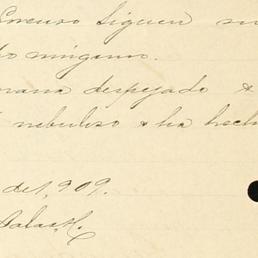 Lorenzo siguen su
do ninguno.
ñana despejado &
nebuloso & ha hech
del, 909.
Salas H.